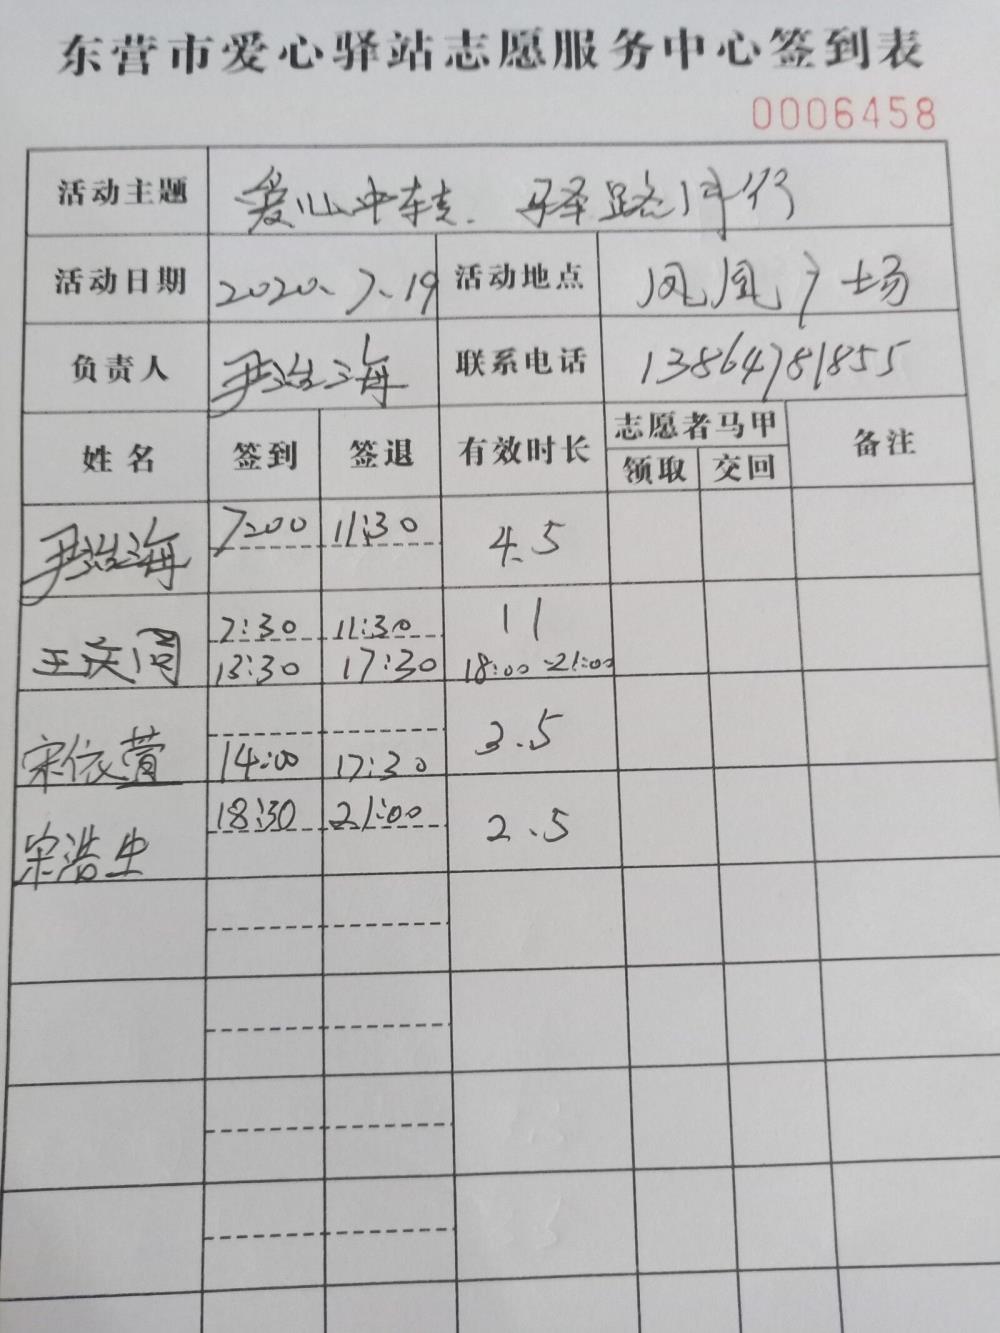 东营市爱心驿站志愿服务中心签到表
0006458
活动主题 爱心中转. 驿路同行
活动日期 2020、7、19 活动地点 凤凰广场
负责人 尹 海 联系电话 13864781855
姓名 签到 签退 有效时长 志愿者马甲 备注
领取 交回
尹 海 7:00 11:30 4.5
7:30 11:30 11
王庆同 13:30 17:30 18:00-21:00
宋依萱 14:00 17:30 3.5
宋浩生 18:30 21:00 2.5